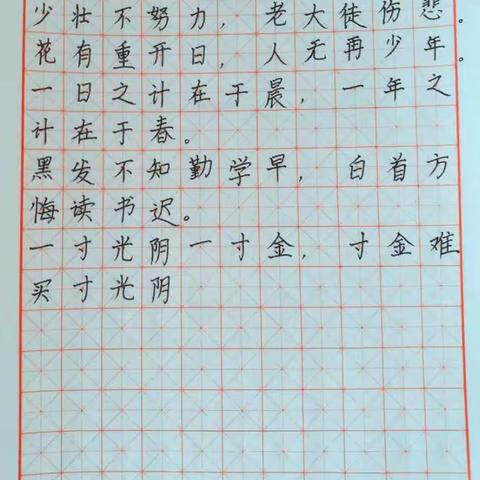 少壮不努力，老大徒伤悲。
花有重开日，人无再少年。
一日之计在于晨，一年之
计在于春。
黑发不知勤学早，白首方
悔读书迟。
一寸光阴一寸金，寸金难
买寸光阴